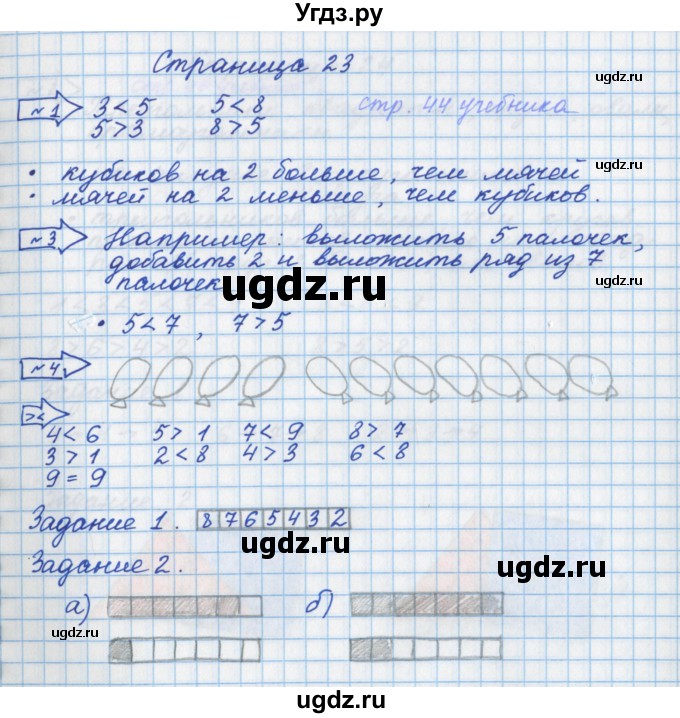 Угдз.ру
Страница 23
ugdz.ru
№1 3 < 5 5 < 8 стр. 44 учебника
5 > 3 8 > 5
• кубиков на 2 больше, чем мячей
• мячей на 2 меньше, чем кубиков.
№3 Например: выложить 5 палочек,
ugdz.ru
добавить 2 и выложить ряд из 7
палочек
ugdz.ru
• 5 < 7 , 7 > 5
№4
>< 
4 < 6 5 > 1 7 < 9 8 > 7
3 > 1 2 < 8 4 > 3 6 < 8
ugdz.ru
9 = 9
Задание 1. 8 7 6 5 4 3 2
ugdz.ru
Задание 2.
ugdz.ru
а) б)
ugdz.ru
ugdz.ru
ugdz.ru